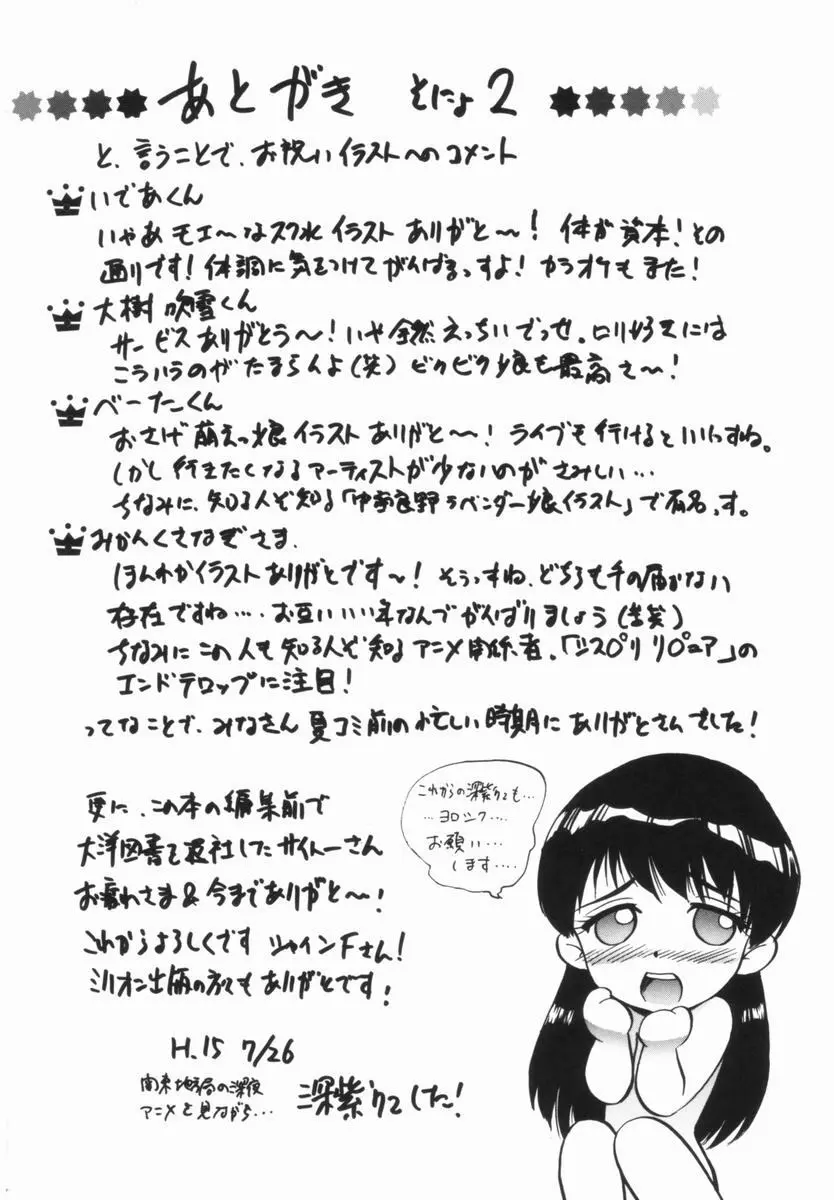 あとがき そによ2
と、言うことで、お祝いイラストへのコメント
いであくん
いやあモエ〜なスク水イラストありがと〜！体が資本！との
通りです！体調に気をつけてがんばるっすよ！カラオケもまた！
大樹吹雪くん
サービスありがとう〜！いや全然えっちいでっせ。ロリ好きには
こういうのがたまらんよ(笑)ビクビク娘も最高さ〜！
べーたこくん
おさげ萌えっ娘イラストありがと〜！ライブも行けるといいすね。
しかし行きたくなるアーティストが少ないのがさみしい…
ちなみに、知る人ぞ知る「中富良野ラベンダー娘イラスト」で有名っす。
みかんくさなぎさま、
ほんわかイラストありがとです〜！そうっすね、どちらも手の届かない
存在ですね…．お互いいい年なんでがんばりましょう(苦笑)
ちなみにこの人も知る人ぞ知るアニメ関係者、「ﾐｽﾌﾟﾘ ﾘﾋﾟｭｱ」の
エンドテロップに注目！
ってなことで、みなさん夏コミ前の忙しい時期にありがとさんでした！
更に、この本の編集前で
大洋図書を退社したサイトーさん
お疲れさま&今までありがと〜！
これからよろしくです シャインFさん！
ミリオン出版の方々もありがとです！
これからの深紫りても…
…ヨロシク…
お願い…
します…
H.15 7/26
関東地方局の深夜
アニメを見ながら…
深紫でした！